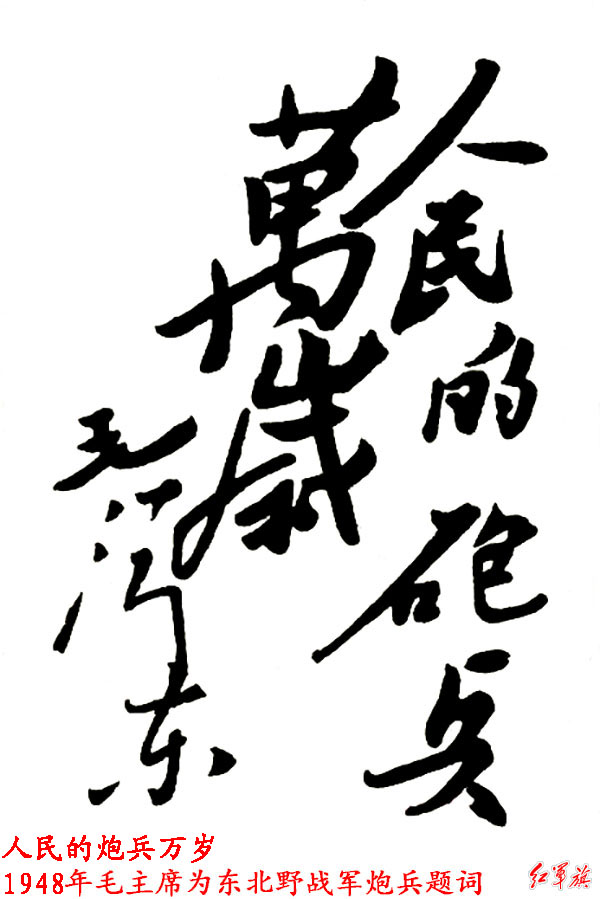 人民的砲兵
萬歲
毛泽东
人民的炮兵万岁
1948年毛主席为东北野战军炮兵题词
红军旗